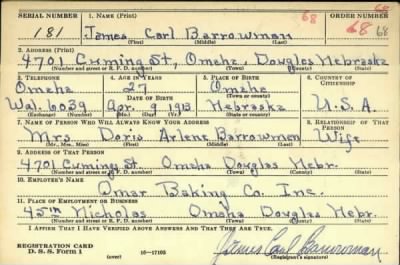 68
SERIAL NUMBER 1. NAME (Print) ORDER NUMBER
181 James Carl Barrowman 68 68
(First) (Middle) (Last)
2. ADDRESS (Print)
4701 Cuming St, Omaha, Douglas Nebraska
(Number and street or R. F. D. number) (Town) (County) (State)
3. TELEPHONE 4. AGE IN YEARS 5. PLACE OF BIRTH 6. COUNTRY OF CITIZENSHIP
Omaha 27 Omaha
DATE OF BIRTH (Town or county)
Wal. 6039 Apr. 9 1913 Nebraska U.S.A.
(Exchange) (Number) (Mo.) (Day) (Yr.) (State or country)
7. NAME OF PERSON WHO WILL ALWAYS KNOW YOUR ADDRESS 8. RELATIONSHIP OF THAT PERSON
Mrs Doris Arlene Barrowman Wife
(Mr., Mrs., Miss) (First) (Middle) (Last)
9. ADDRESS OF THAT PERSON
4701 Cuming St Omaha Douglas Nebr.
(Number and street or R. F. D. number) (Town) (County) (State)
10. EMPLOYER'S NAME
Omar Baking Co. Inc.
11. PLACE OF EMPLOYMENT OR BUSINESS
45th Nicholas Omaha Douglas Nebr.
(Number and street or R. F. D. number) (Town) (County) (State)
I AFFIRM THAT I HAVE VERIFIED ABOVE ANSWERS AND THAT THEY ARE TRUE.
REGISTRATION CARD
D. S. S. Form 1 (over) 16—17105 James Carl Barrowman
(Registrant's signature)